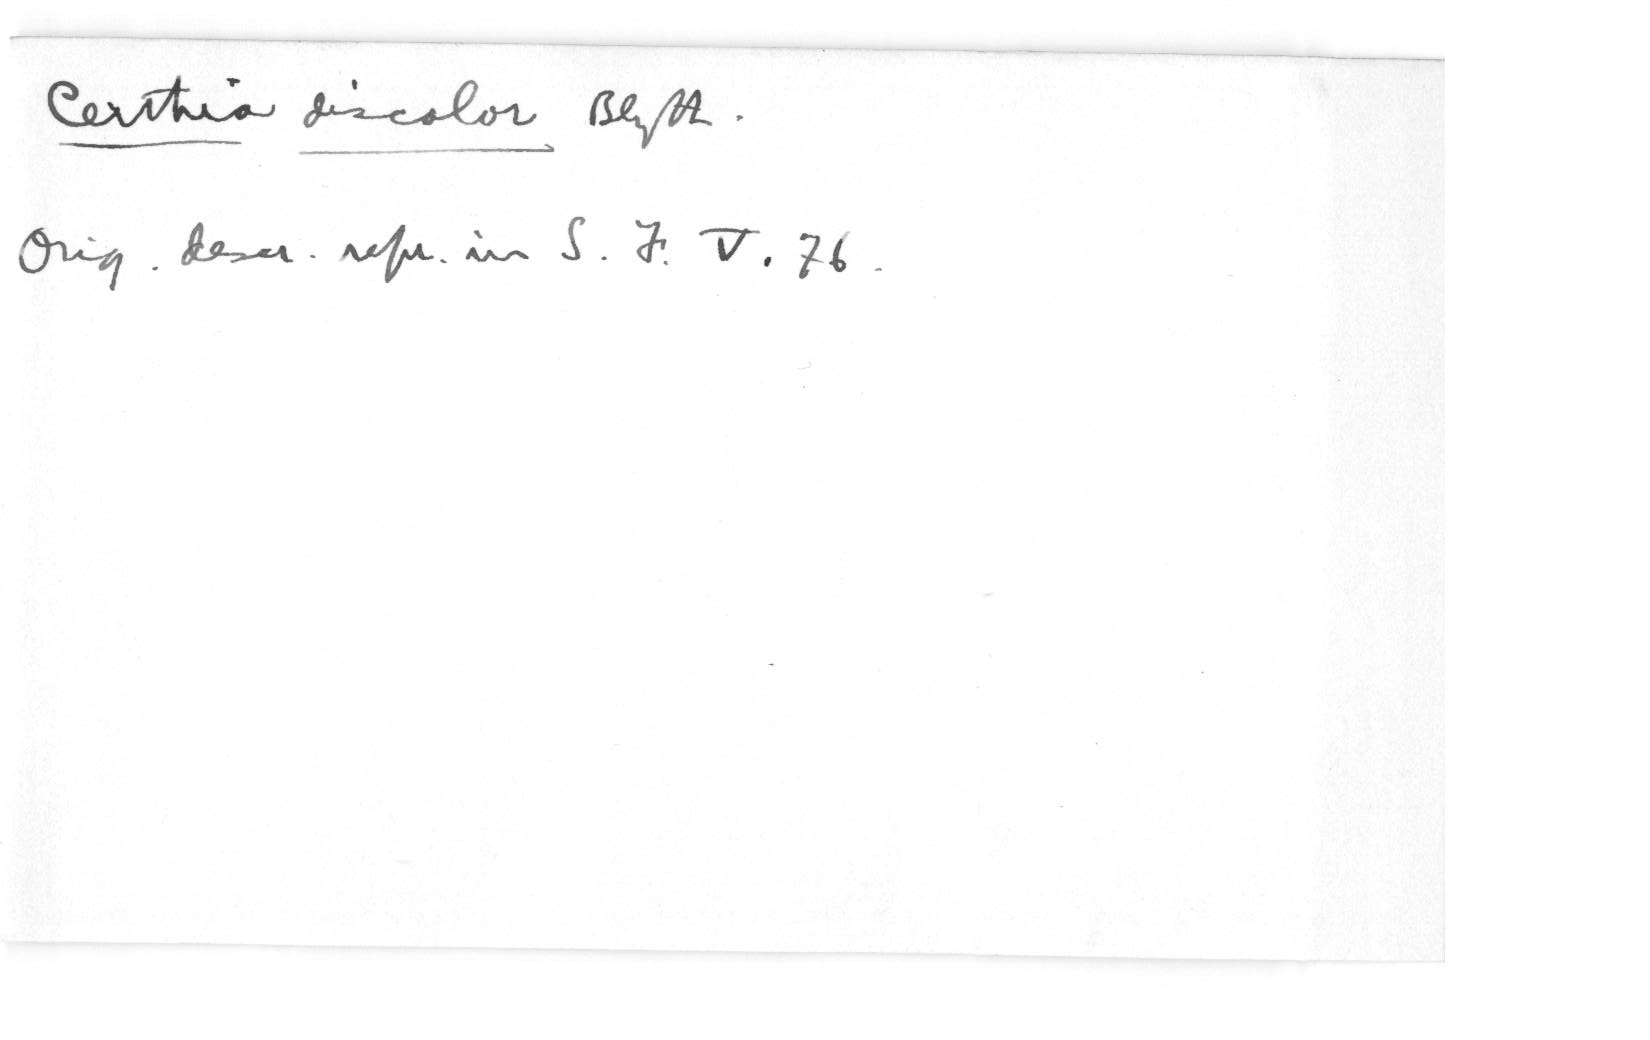 Certhia discolor Blyth.
Orig. descr. repr. in S. F. V. 76.